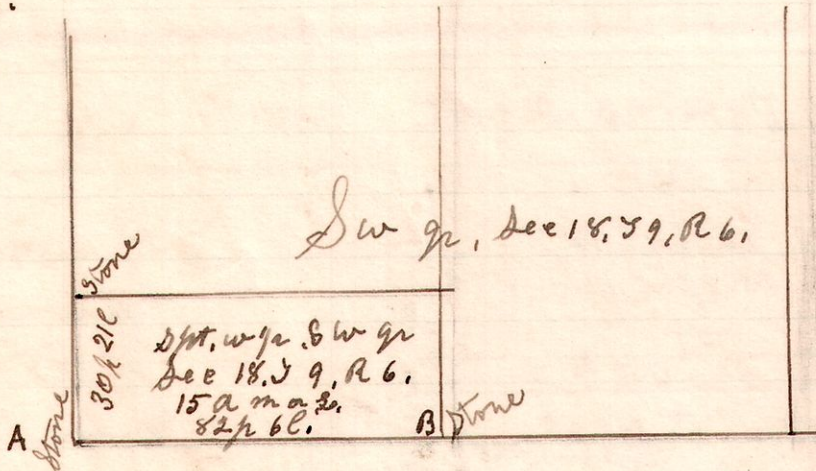 Sw qr, Sec 18, T 9, R 6.
Stone
30p 21l
Spt. w qr. S w qr
Sec 18. T 9, R 6.
15 a m or l.
82p 6l.
A
Stone
B
Stone